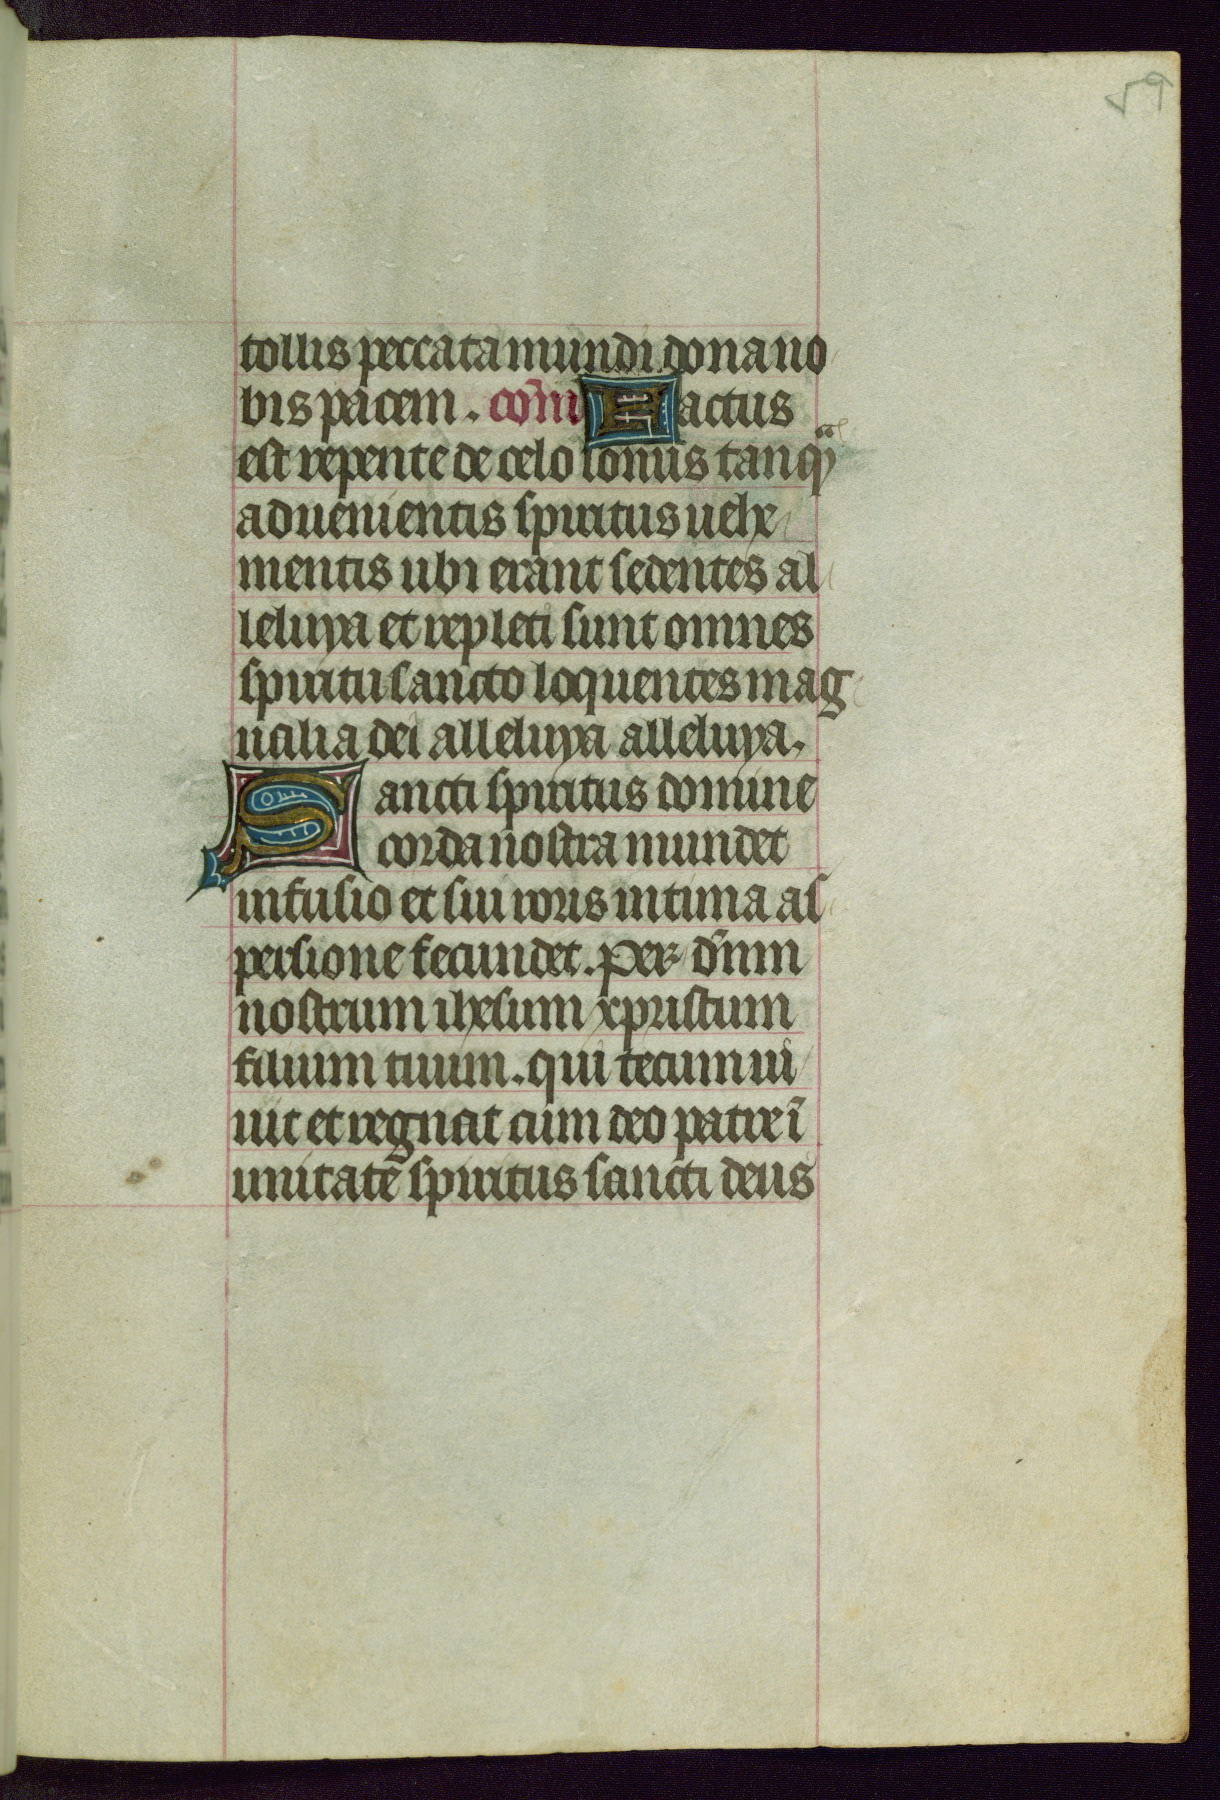 59
tollis peccata mundi dona no
bis pacem. com̄ Factus
est repente de celo sonus tanq̄
aduenientis spiritus vehe
mentis ubi erant sedentes al
leluya et repleti sunt omnes
spiritu sancto loquentes mag
nalia dei alleluya alleluya.
Sancti spiritus domine
corda nostra mundet
infusio et sui roris intima as
persione fecundet. Per dn̄m
nostrum ihesum xpristum
filium tuum. qui tecum ui
uit et regnat cum deo patre ī
unitatē spiritus sancti deus